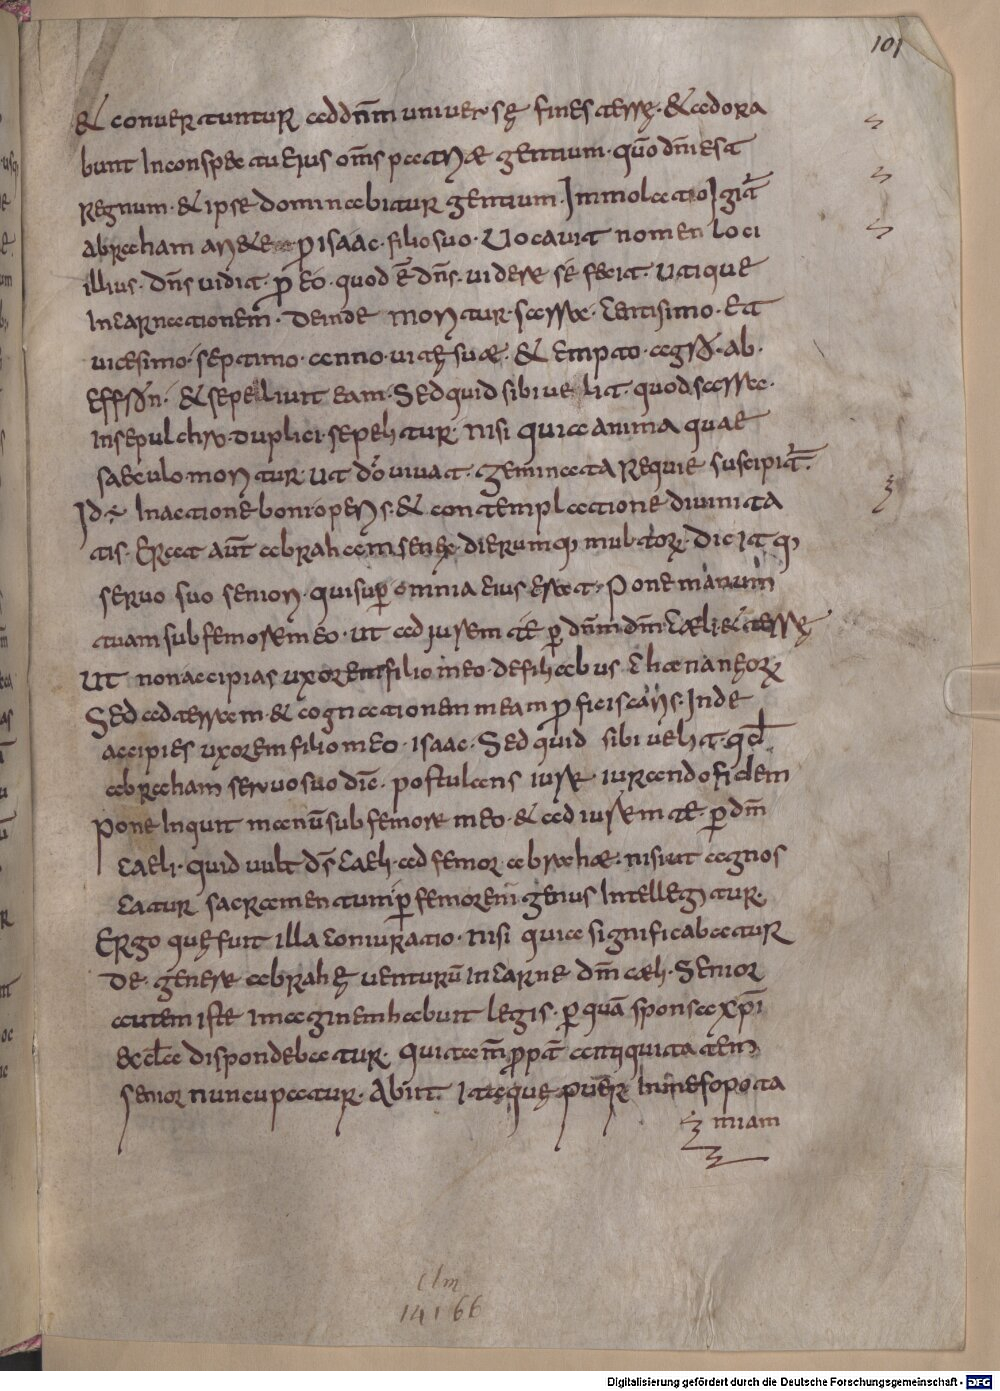 101
& conuertuntur ad dnm uniuersę fines terrę· & adora
bunt Inconspectu eius oms patriae gentium· quo dni est
regnum· & ipse dominabitur gentium· Immolatio Igit
abraham ari&e p isaac· filio suo· Uocauit nomen loci
illius· dns uidit· p eo· quod ē dns· uidere se fecit· utique
Incarnationem· deinde moritur· sarrae· centisimo· et
uicesimo· septimo· anno· uitę suae· & empto· agro· ab·
effron· & sepelliunt eam· Sed quid sibi uelit· quod sarra·
Insepulchro· duplici· sepelitur· nisi quia anima quae
saeculo moritur· ut do uiuat· geminata requie suscipit·
Id ÷ Inactione boni operis· & contemplatione diuinita
tis· Erat aut abraham senex· dierumq multor· Dicitq
seruo suo seniori· qui sup omnia eius erat· Pone manum
tuam sub femore meo· ut adiurem te p dnm dm caeli & terrę
ut non accipias uxorem filio meo· de filiabus chananeor
Sed ad terram & cognationem meam pficiscaris· Inde
accipies uxorem filio meo· isaac· Sed quid sibi uelit· qd
abraham seruo suo dic· postulans iure iurando fidem
Pone Inquit manū sub femore meo· & adiurem te· p dm
caeli· quid uult ds caeli· ad femor abrahae· nisi ut agnos
catur sacramentum p femorem· genus Intellegitur·
Ergo quę fuit illa coniuratio· nisi quia significabatur
de genere abrahę uenturū Incarne dm caeli· Senior
autem iste Imaginem habuit legis· p quā sponsa xpi
ecla dispondebatur· qui tam ppt antiquitatem
senior nuncupatur· Abiit Itaque puer In mesopota
miam
Clm
14166
Digitalisierung gefördert durch die Deutsche Forschungsgemeinschaft - DFG